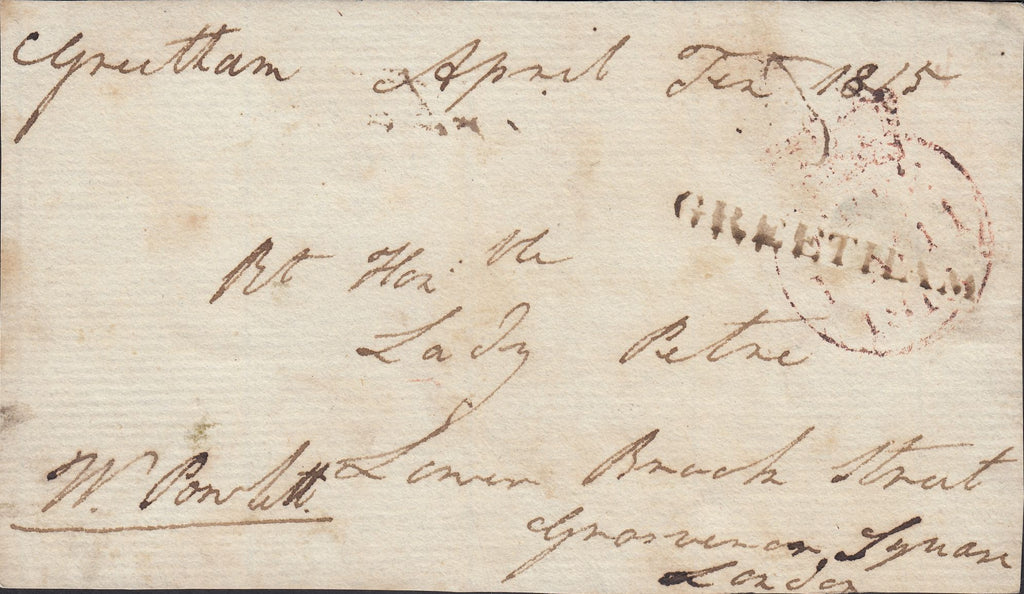 Greetham April Ten 1815
GREETHAM
Rt Hon:ble
Lady Petre
Lower Brook Street
W. Powlett.
Grosvenor Square
London